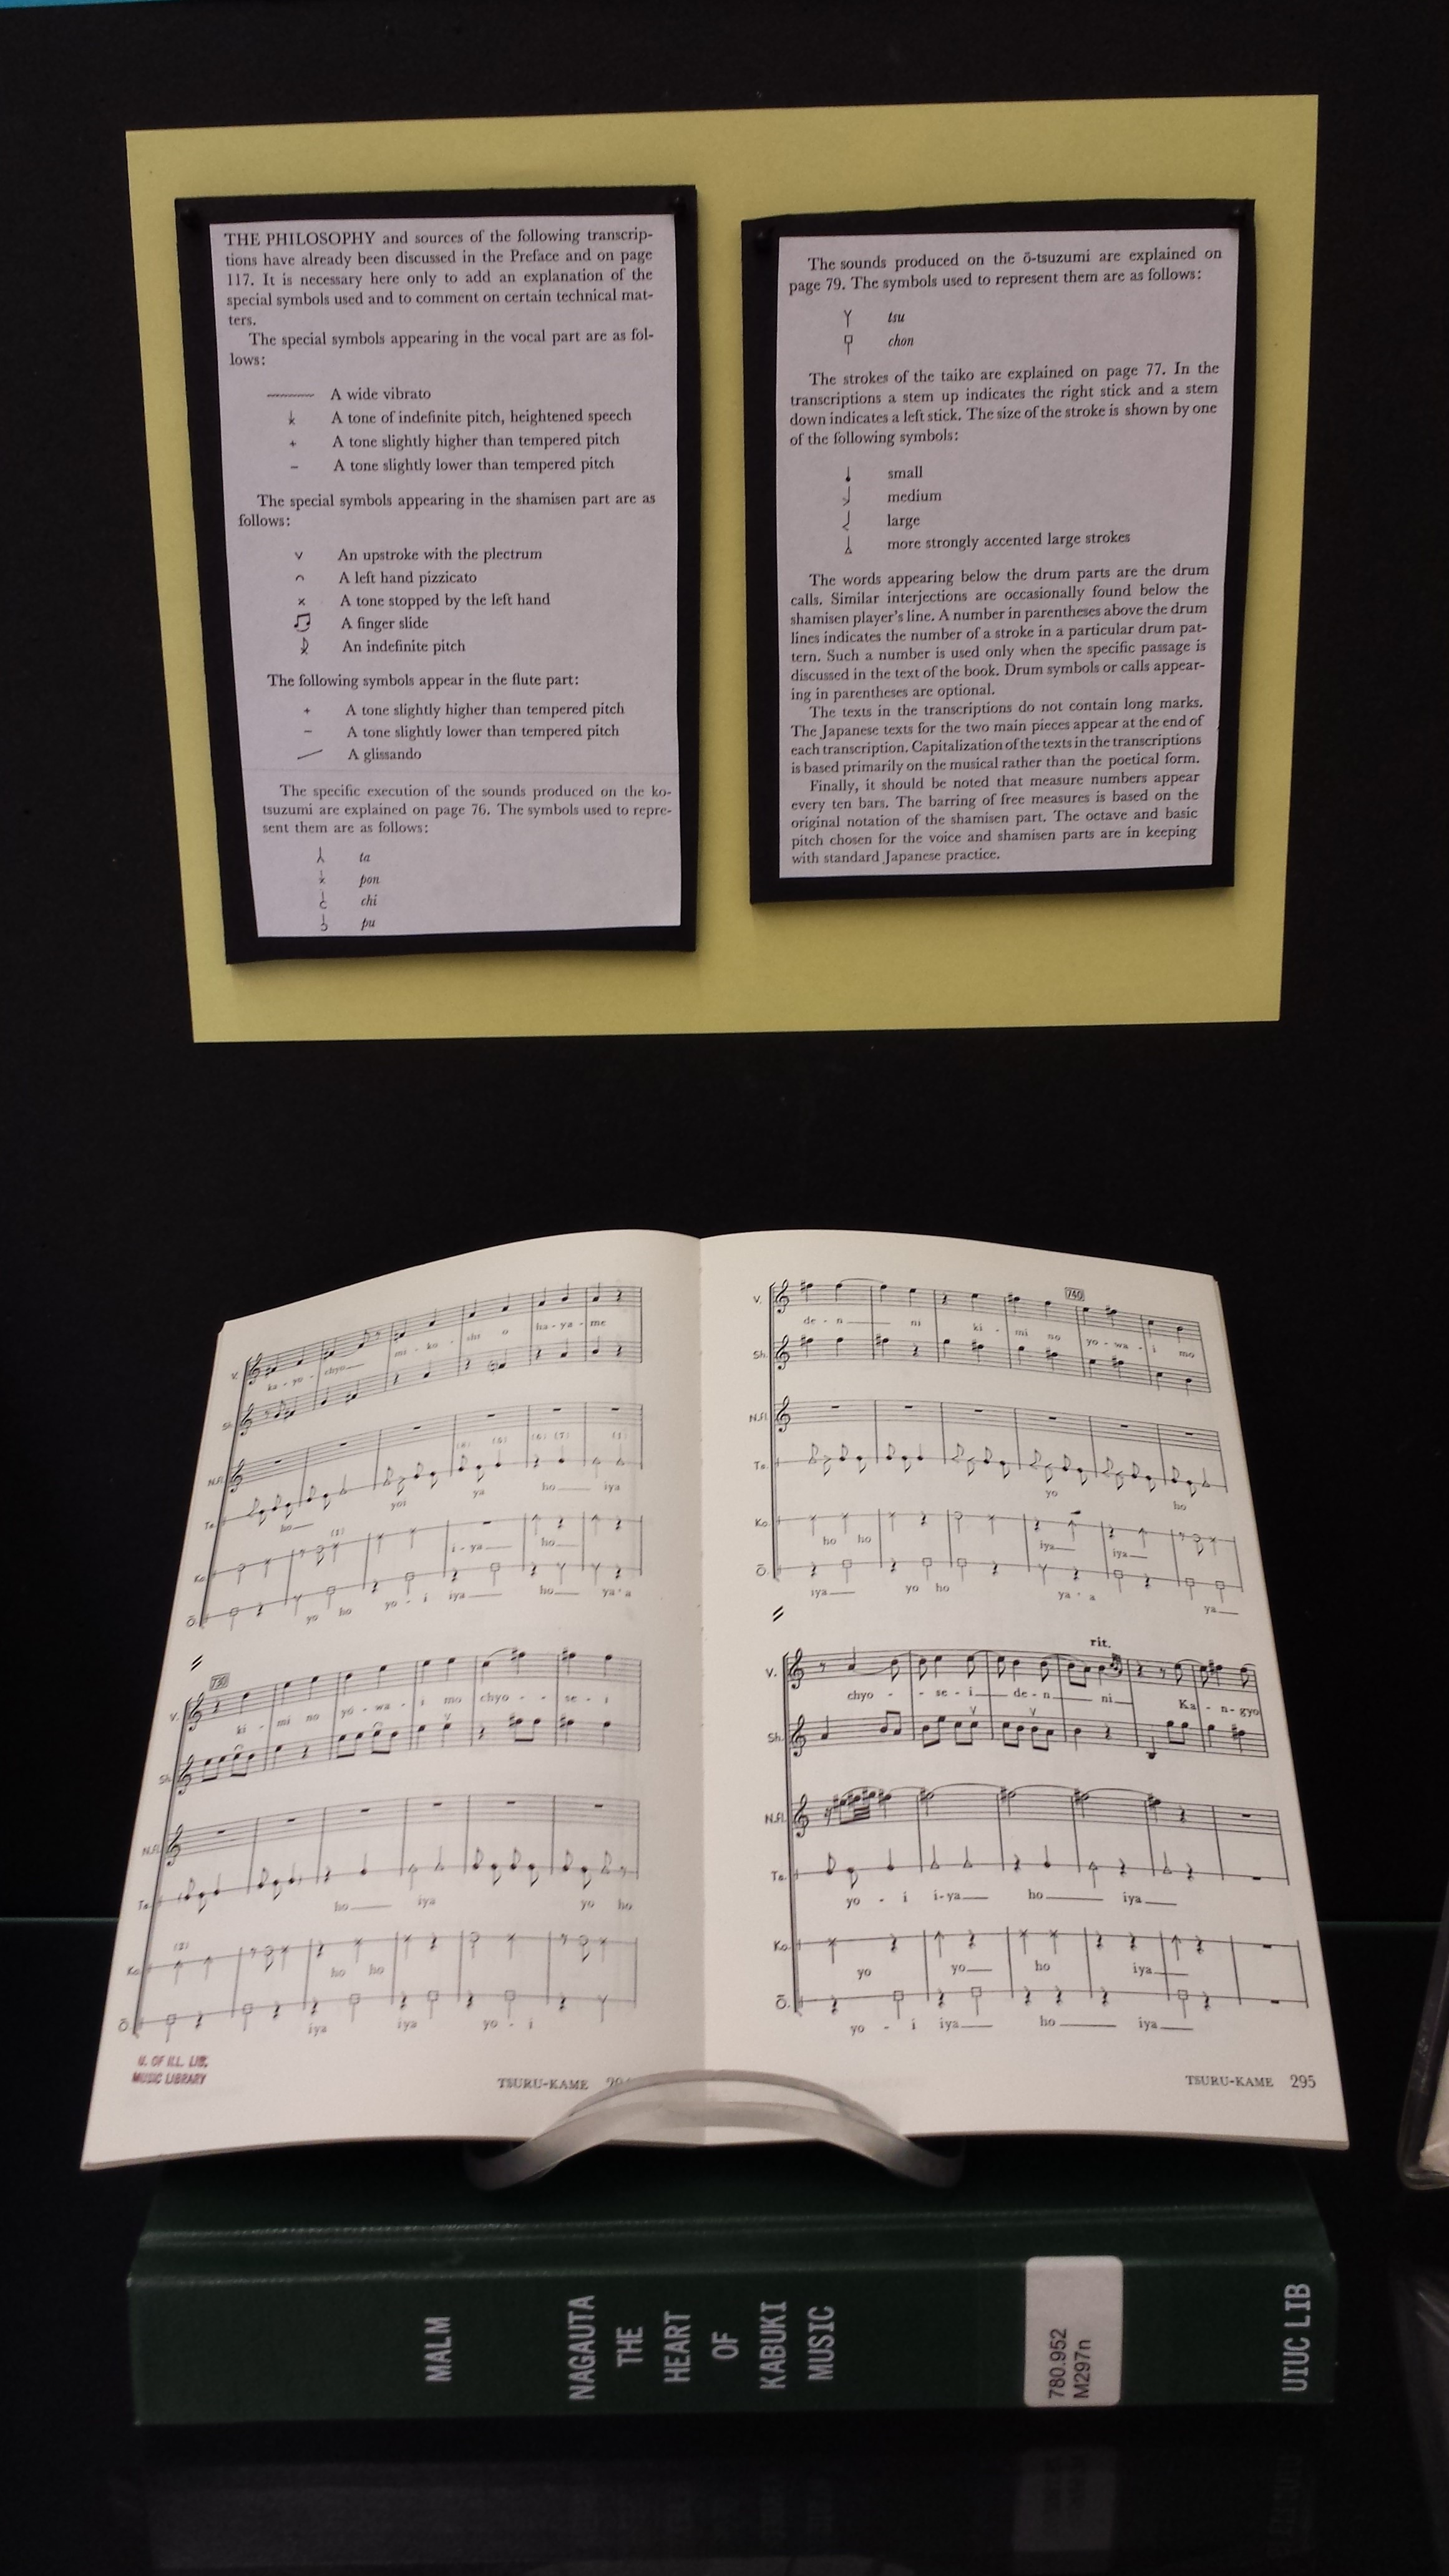 THE PHILOSOPHY and sources of the following transcrip-
tions have already been discussed in the Preface and on page
117. It is necessary here only to add an explanation of the
special symbols used and to comment on certain technical mat-
ters.
The special symbols appearing in the vocal part are as fol-
lows:
A wide vibrato
A tone of indefinite pitch, heightened speech
+ A tone slightly higher than tempered pitch
– A tone slightly lower than tempered pitch
The special symbols appearing in the shamisen part are as
follows:
v An upstroke with the plectrum
A left hand pizzicato
x A tone stopped by the left hand
A finger slide
An indefinite pitch
The following symbols appear in the flute part:
+ A tone slightly higher than tempered pitch
– A tone slightly lower than tempered pitch
A glissando
The specific execution of the sounds produced on the ko-
tsuzumi are explained on page 76. The symbols used to repre-
sent them are as follows:
ta
pon
chi
pu
The sounds produced on the ō-tsuzumi are explained on
page 79. The symbols used to represent them are as follows:
tsu
chon
The strokes of the taiko are explained on page 77. In the
transcriptions a stem up indicates the right stick and a stem
down indicates a left stick. The size of the stroke is shown by one
of the following symbols:
small
medium
large
more strongly accented large strokes
The words appearing below the drum parts are the drum
calls. Similar interjections are occasionally found below the
shamisen player's line. A number in parentheses above the drum
lines indicates the number of a stroke in a particular drum pat-
tern. Such a number is used only when the specific passage is
discussed in the text of the book. Drum symbols or calls appear-
ing in parentheses are optional.
The texts in the transcriptions do not contain long marks.
The Japanese texts for the two main pieces appear at the end of
each transcription. Capitalization of the texts in the transcriptions
is based primarily on the musical rather than the poetical form.
Finally, it should be noted that measure numbers appear
every ten bars. The barring of free measures is based on the
original notation of the shamisen part. The octave and basic
pitch chosen for the voice and shamisen parts are in keeping
with standard Japanese practice.
V.
ka - yo - chyo mi - ko - shi o ha - ya - me
Sh.
N.Fl.
(5) (6) (7) (1)
Ta.
ho yoi ya ho iya
Ko.
i - ya ho
Ō.
yo ho yo - i iya ho ya - a
730
V.
ki - mi no yo - wa - i mo chyo - - se - i
Sh.
N.Fl.
Ta.
ho iya yo ho
(2)
Ko.
ho ho
Ō.
iya iya yo - i
U. OF ILL. LIB.
MUSIC LIBRARY
TSURU-KAME
740
V.
de - n ni ki - mi no yo - wa - i mo
Sh.
N.Fl.
Ta.
yo ho
Ko.
ho ho iya iya
Ō.
iya yo ho ya - a ya
rit.
V.
chyo - - se - i de - n ni Ka - n - gyo
Sh.
N.Fl.
Ta.
yo - i i-ya ho iya
Ko.
yo yo ho iya
Ō.
yo - i iya ho iya
TSURU-KAME 295
MALM
NAGAUTA
THE
HEART
OF
KABUKI
MUSIC
780.952
M297n
UIUC LIB